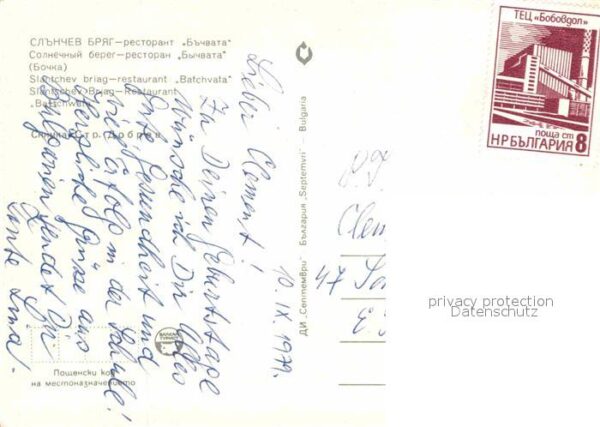 СЛЪНЧЕВ БРЯГ—ресторант „Бъчвата"
Солнечный берег—ресторан „Бычвата"
(Бочка)
Slantchev briag—restaurant „Batchvata"
Slantschev Brjag—Restaurant
„Batschwata"
Снимка Стр. Добрев
Lieber Clement!
Zu Deinem Geburtstage
Wünsche ich Dir alles
Gute, Gesundheit und
viel Erfolg in der Schule!
Herzliche Grüsse aus
Bulgarien sendet Dir
Tante Lina.
10.IX.1979.
ДИ „Септември" България „Septemvri" — Bulgaria
БАЛКАН
ТУРИСТ
Пощенски код
на местоназначението
ТЕЦ „Бобовдол"
поща ст
НР БЪЛГАРИЯ 8
Clem
47
privacy protection
Datenschutz